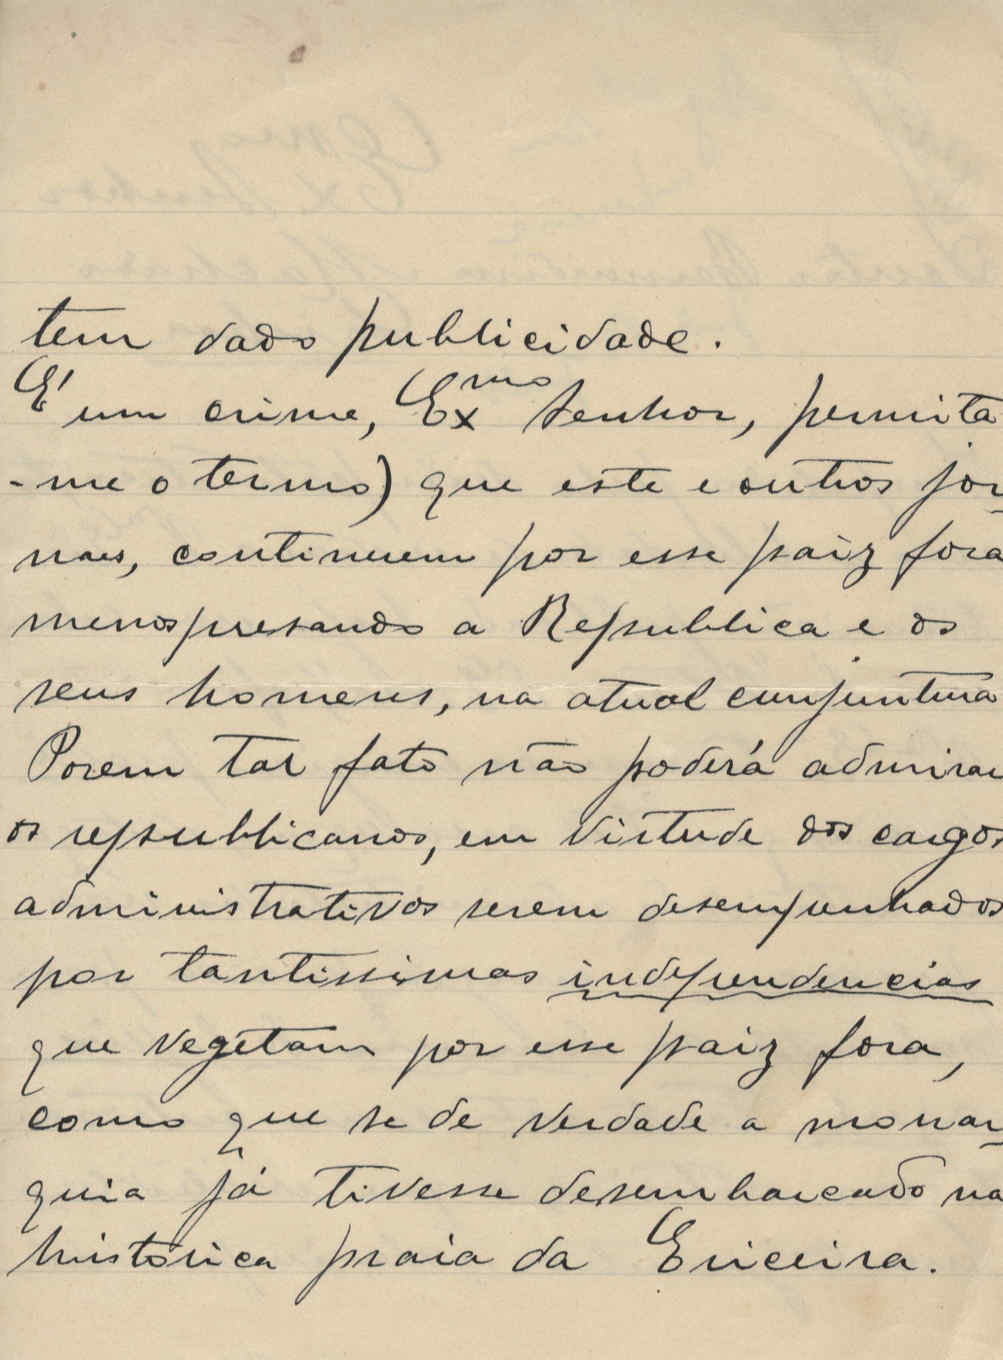 tem dado publicidade.
É um crime, Exmo Senhor, permita
-me o termo) que este e outros jor-
naes, continuem por esse paiz fora
menospresando a Republica e os
seus homens, na atual cunjuntura
Porem tal fato não poderá admirar
os republicanos, em virtude dos cargos
administrativos serem desempenhados
por tantissimas independencias
que vegetam por esse paiz fora,
como que se de verdade a monar-
quia já tivesse desembarcado na
histórica praia da Ericeira.